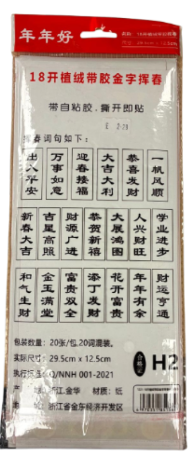 年年好
18开植绒带胶金字挥春
带自粘胶,撕开即贴
挥春词句如下:
出入平安 万事如意 迎春接福 大吉大利 恭喜发财 一帆风顺
新春大吉 吉星高照 财源广进 恭贺新禧 大展鸿图 人兴财旺 学业进步
和气生财 金玉满堂 富贵双全 添丁发财 花开富贵 年年有余 财运亨通
包装数量:20张/包,20词混装。
实际尺寸:29.5cm×12.5cm
Q/NNH 001-2021
浙江.金华 材质:纸
浙江省金东经济开发区
H2